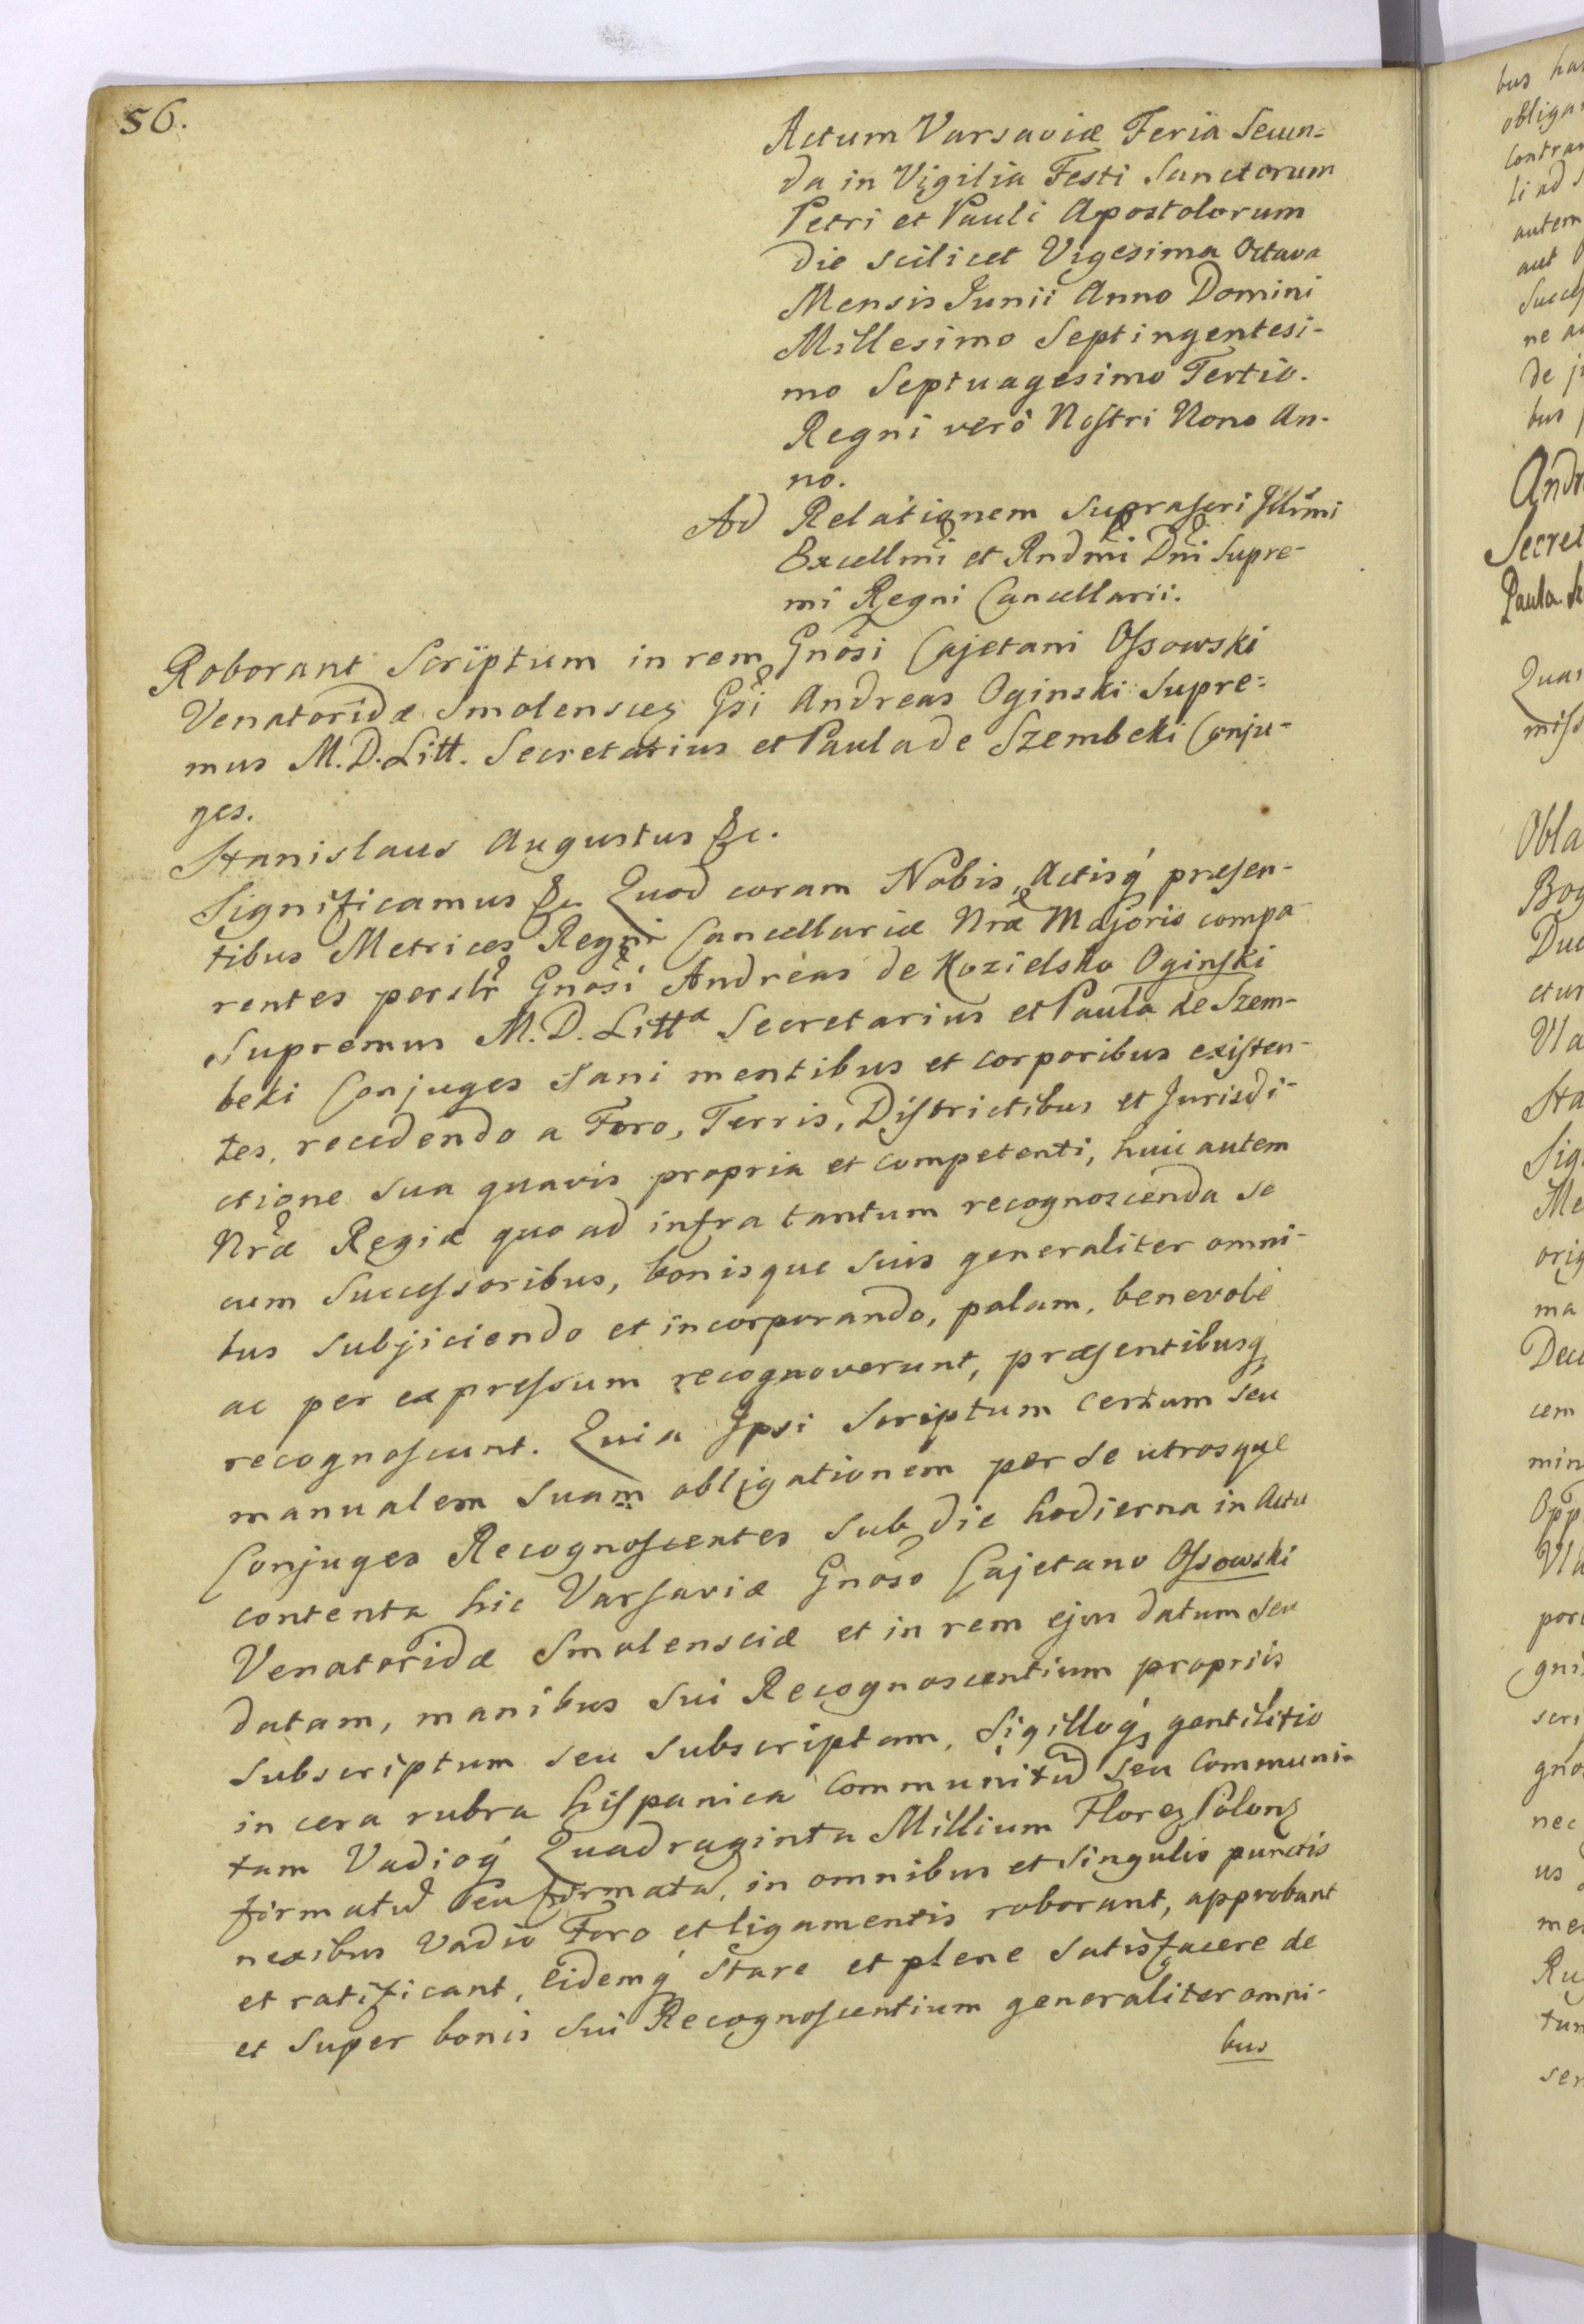 56.
Actum Varsaviæ Feria Secun-
da in Vigilia Festi Sanctorum
Petri et Pauli Apostolorum
die scilicet Vigesima Octava
Mensis Junii Anno Domini
Millesimo Septingentesi-
mo Septuagesimo Tertio.
Regni verò Nostri Nono An-
no.
Ad Relationem suprascri Illrmi
Excellmi et Rndmi Dni Supre-
mi Regni Cancellarii.
Roborant Scriptum in rem Gnosi Cajetani Ossowski
Venatoridæ Smolenscen Gsi Andreas Oginski Supre-
mus M.D.Litt. Secretarius et Paula de Szembeki Conju-
ges.
Stanislaus Augustus &c.
Significamus &c. Quod coram Nobis, Actisq́ præsen-
tibus Metrices Regni Cancellariæ Nræ Majoris compa
rentes perslr Gnosi Andreas de Kozielsko Oginski
Supremus M.D. Littæ Secretarius et Paula de Szem-
beki Conjuges sani mentibus et corporibus existen-
tes, recedendo a Foro, Terris, Districtibus et Jurisdi-
ctione sua quavis propria et competenti, huic autem
Nræ Regiæ quo ad infra tantum recognoscenda se
cum Successoribus, bonisque suis generaliter omni-
bus subjiciendo et incorporando, palam, benevole
ac per expressum recognoverunt, præsentibusq
recognoscunt. Quia Ipsi Scriptum certum seu
manualem suam obligationem per se utrosque
Conjuges Recognoscentes sub die hodierna in Actu
contenta hic Varsaviæ Gnoso Cajetano Ossowski
Venatoridæ Smolensciæ et in rem ejus datum seu
datam, manibus sui Recognoscentium propriis
subscriptum seu subscriptam, Sigilloq́ gentilitio
in cera rubra hispanica communitũ seu communi-
tam Vadioq́ Quadraginta Millium Floren Polon
firmatũ seu firmatã, in omnibus et singulis punctis
nexibus Vadio Foro et ligamentis roborant, approbant
et ratificant, Eidemq́ stare et plene satisfacere de
et super bonis sui Recognoscentium generaliter omni-
bus